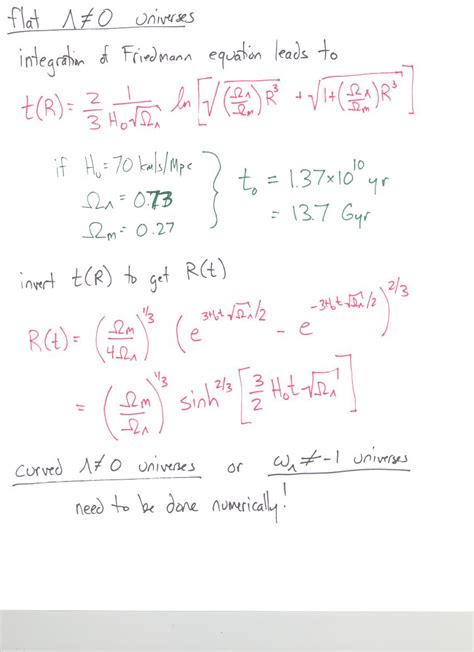 flat Λ≠0 universes
integration of Friedmann equation leads to
t(R) = 2/3 1/(H₀√Ω_Λ) ln[√((Ω_Λ/Ω_m)R³) + √(1+(Ω_Λ/Ω_m)R³)]
if H₀ = 70 km/s/Mpc
Ω_Λ = 0.73
Ω_m = 0.27
} t₀ = 1.37×10¹⁰ yr
= 13.7 Gyr
invert t(R) to get R(t)
R(t) = (Ω_m/4Ω_Λ)^(1/3) (e^(3H₀t√Ω_Λ/2) - e^(-3H₀t√Ω_Λ/2))^(2/3)
= (Ω_m/Ω_Λ)^(1/3) sinh^(2/3) [3/2 H₀t√Ω_Λ]
curved Λ≠0 universes or ω_Λ≠-1 universes
need to be done numerically!